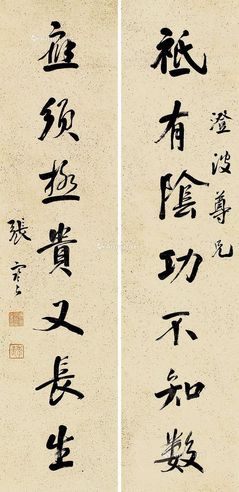 澄波尊兄
祗有陰功不知數
應須極貴又長生
張謇